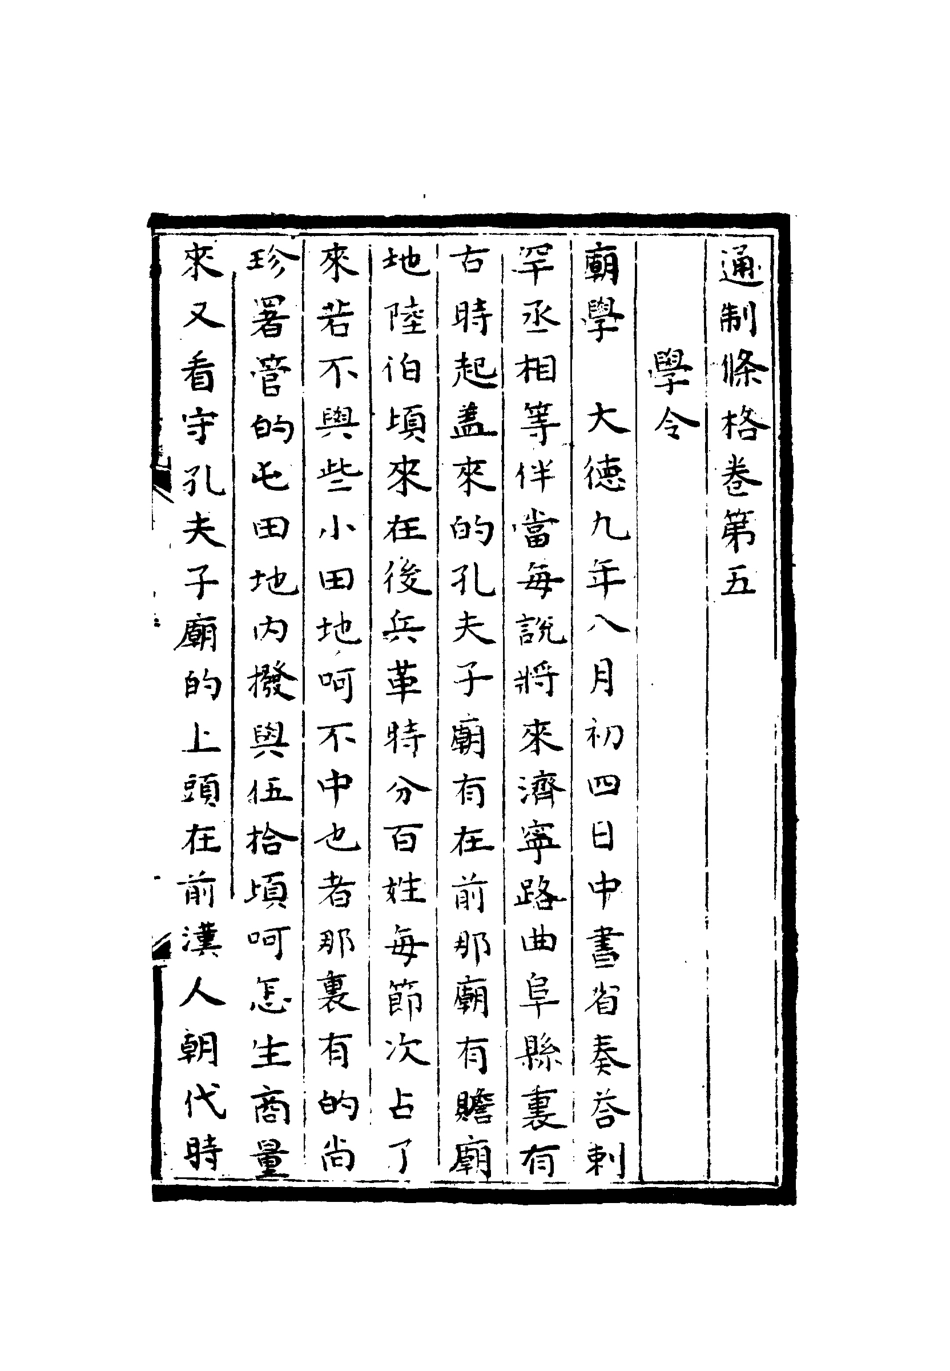 通制條格卷第五
學令
廟學　大德九年八月初四日中書省奏荅剌
罕丞相等伴當每說將來濟寧路曲阜縣裏有
古時起盖來的孔夫子廟有在前那廟有贍廟
地陸伯頃來在後兵革時分百姓每節次占了
來若不與些小田地呵不中也者那裏有的尚
珍署管的屯田地內撥與伍拾頃呵怎生商量
來又看守孔夫子廟的上頭在前漢人朝代時